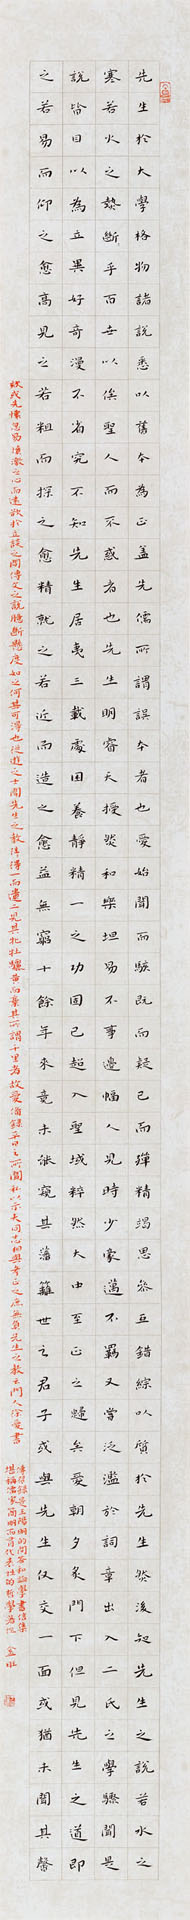 先生於大學格物諸說悉以舊本為正蓋先儒所謂誤本者也愛始聞而駭既而疑已而殫精竭思參互錯綜以質於先生然後知先生之說若水之
寒若火之熱斷乎百世以俟聖人而不惑者也先生明睿天授然和樂坦易不事邊幅人見時少豪邁不羈又嘗泛濫於詞章出入二氏之學驟聞是
說皆目以為立異好奇漫不省究不知先生居夷三載處困養靜精一之功固已超入聖域粹然大中至正之歸矣愛朝夕炙門下但見先生之道即
之若易而仰之愈高見之若粗而探之愈精就之若近而造之愈益無窮十餘年來竟未能窺其藩籬世之君子或與先生僅交一面或猶未聞其謦
欬或先懷忽易憤激之心而遽欲於立談之間傳文之說臆斷懸度如之何其可得也從遊之士聞先生之教往往得一而遺二見其牝牡驪黃而棄其所謂千里者故愛備錄平日之所聞私以示夫同志相與考正之庶無負先生之教云門人徐愛書
傳習錄是王陽明的問答和論學書信集
堪稱儒家簡明而有代表性的哲學著作